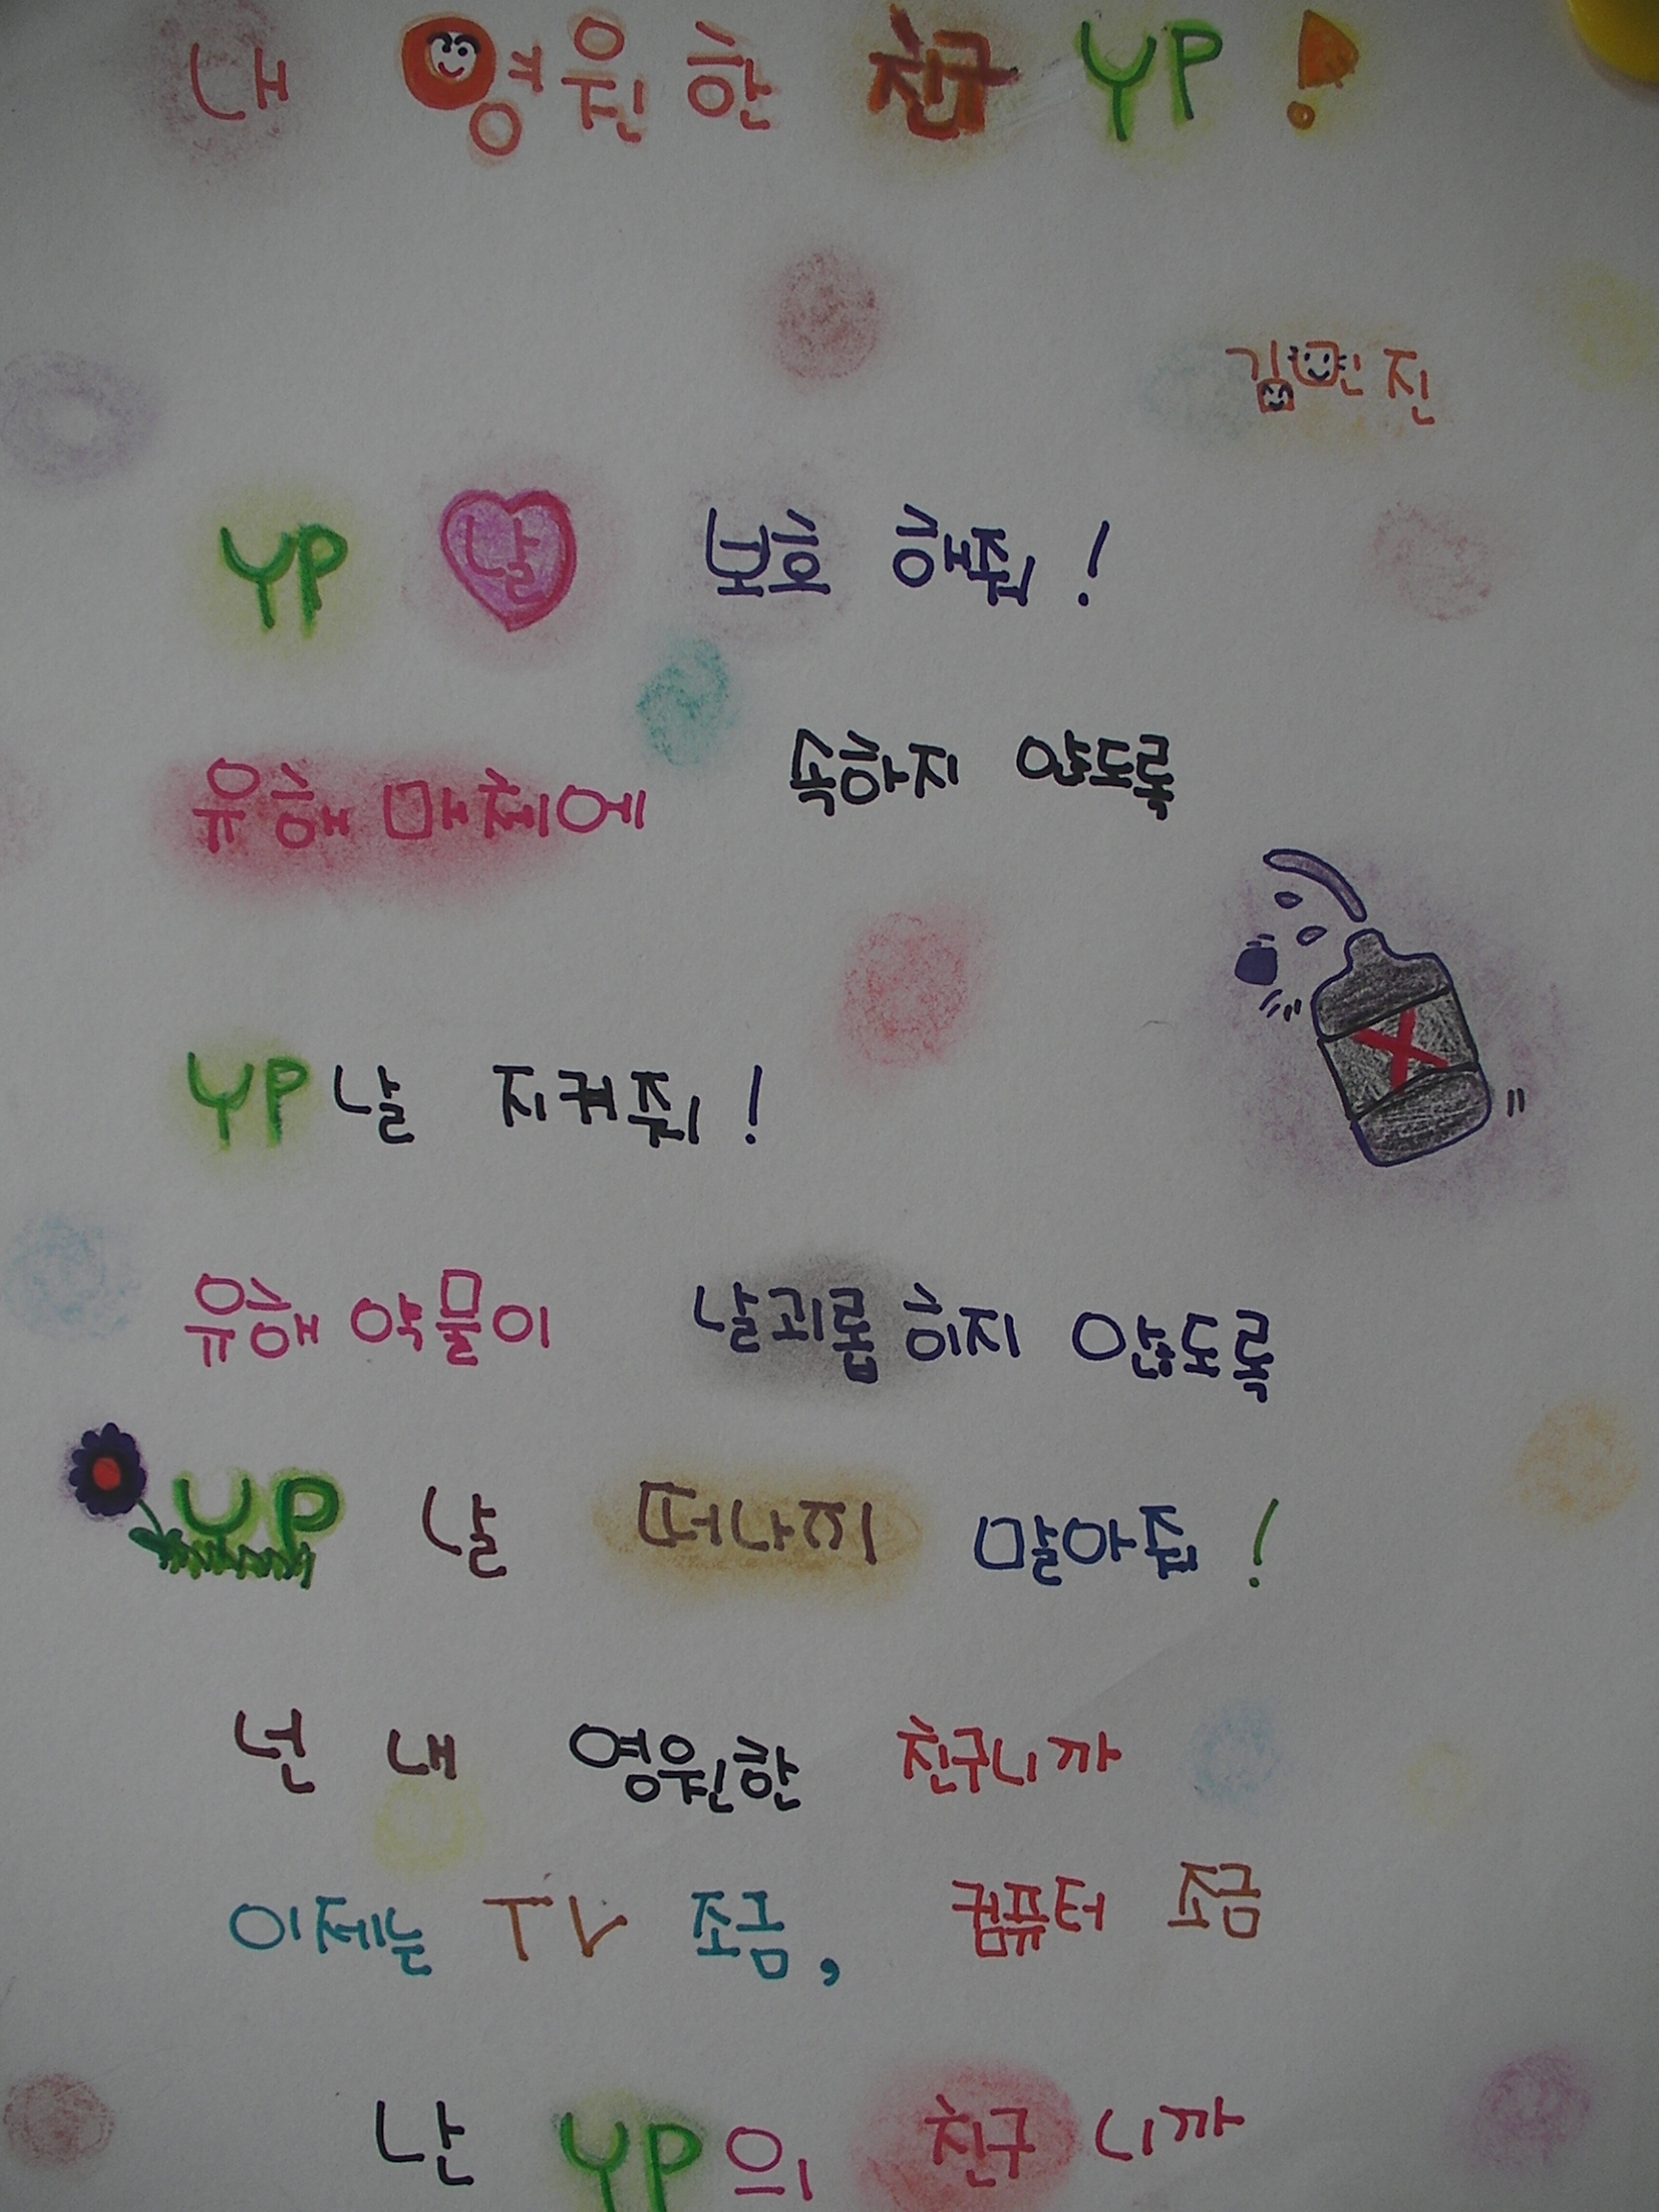 내 영원한 친구 YP!
김민진
YP 날 보호 해줘!
유해 매체에 속하지 않도록
YP 날 지켜줘!
유해 약물이 날 괴롭 히지 않도록
YP 날 떠나지 말아줘!
넌 내 영원한 친구니까
이제는 TV 조금, 컴퓨터 조금
난 YP의 친구 니까